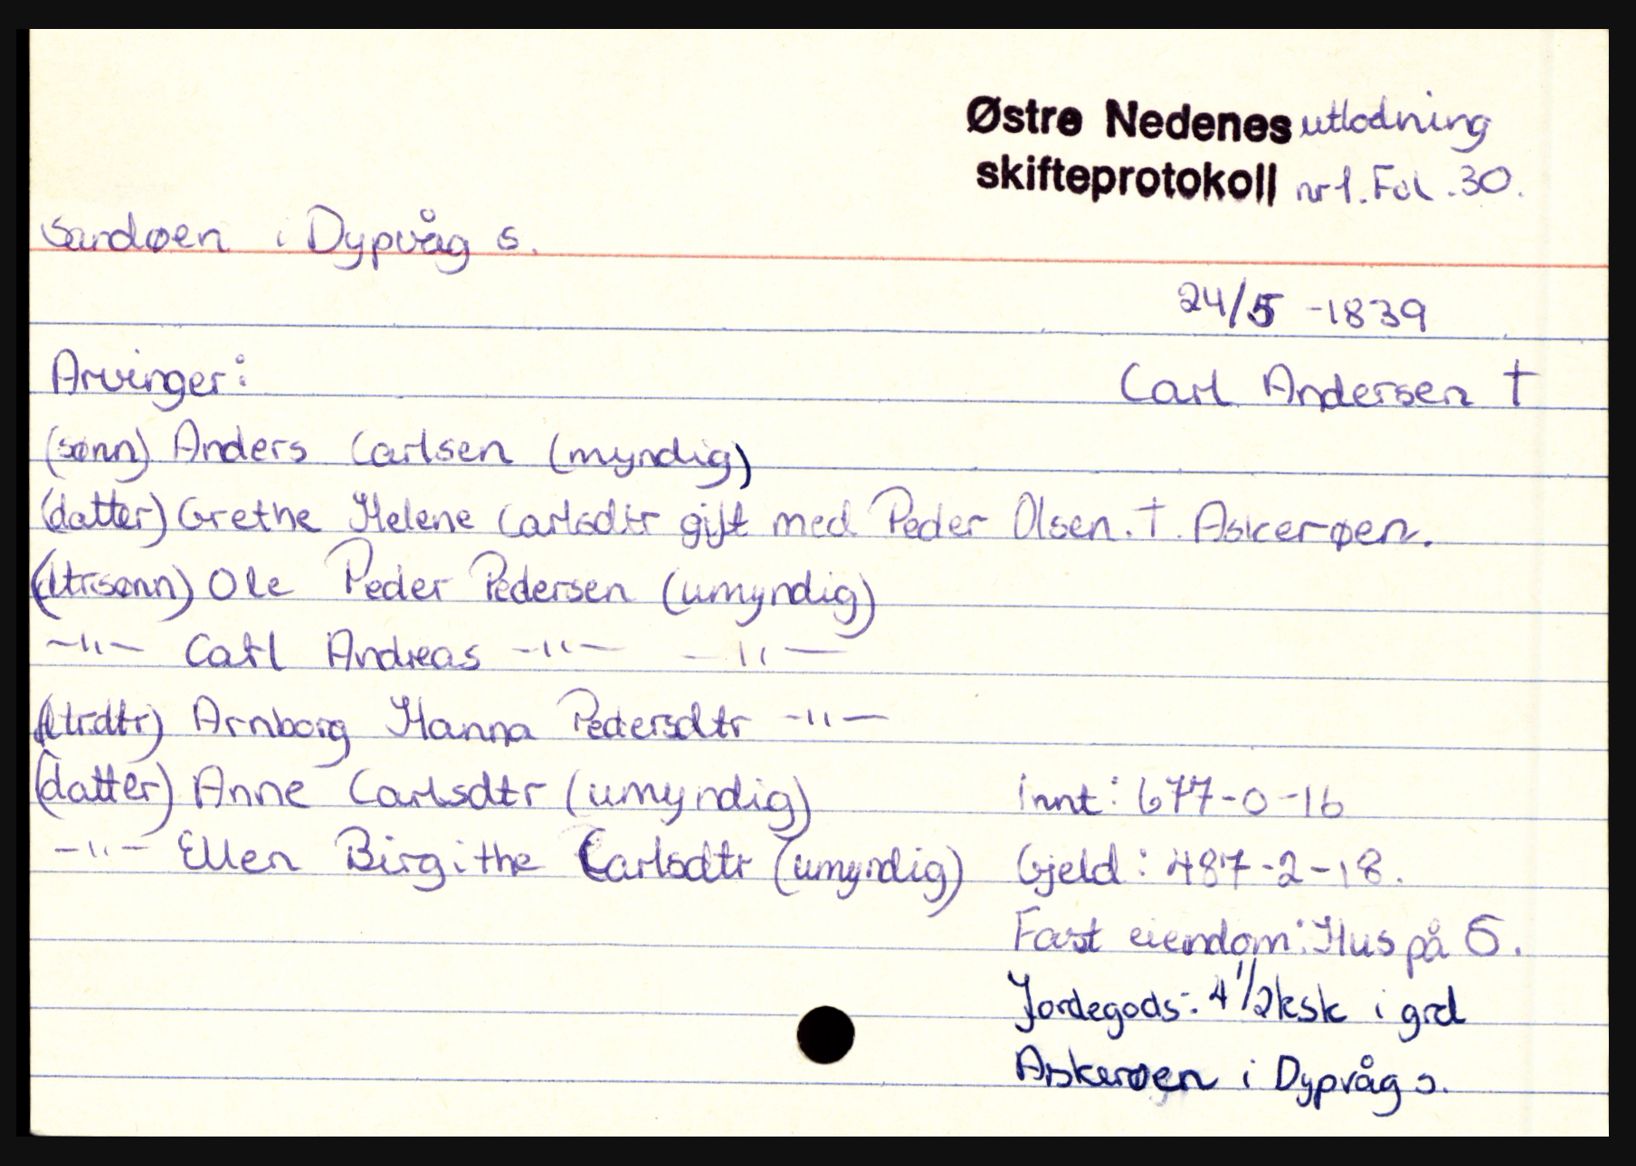 Østre Nedenes utlodning
skifteprotokoll nr 1. Fol. 30.
Sandøen i Dypvåg s.
24/5 -1839
Arvinger: Carl Andersen †
(sønn) Anders Carlsen (myndig)
(datter) Grethe Helene Carlsdtr gift med Peder Olsen. †. Askerøen.
(dtrsønn) Ole Peder Pedersen (umyndig)
-"- Carl Andreas -"- -"-
(dtrdtr) Arnborg Hanna Pedersdtr -"-
(datter) Anne Carlsdtr (umyndig) innt: 677-0-16
-"- Ellen Birgithe Carlsdtr (umyndig) Gjeld: 487-2-18.
Fast eiendom: Hus på S.
Jordegods: 4 1/2 ksk i grd
Askerøen i Dypvåg s.